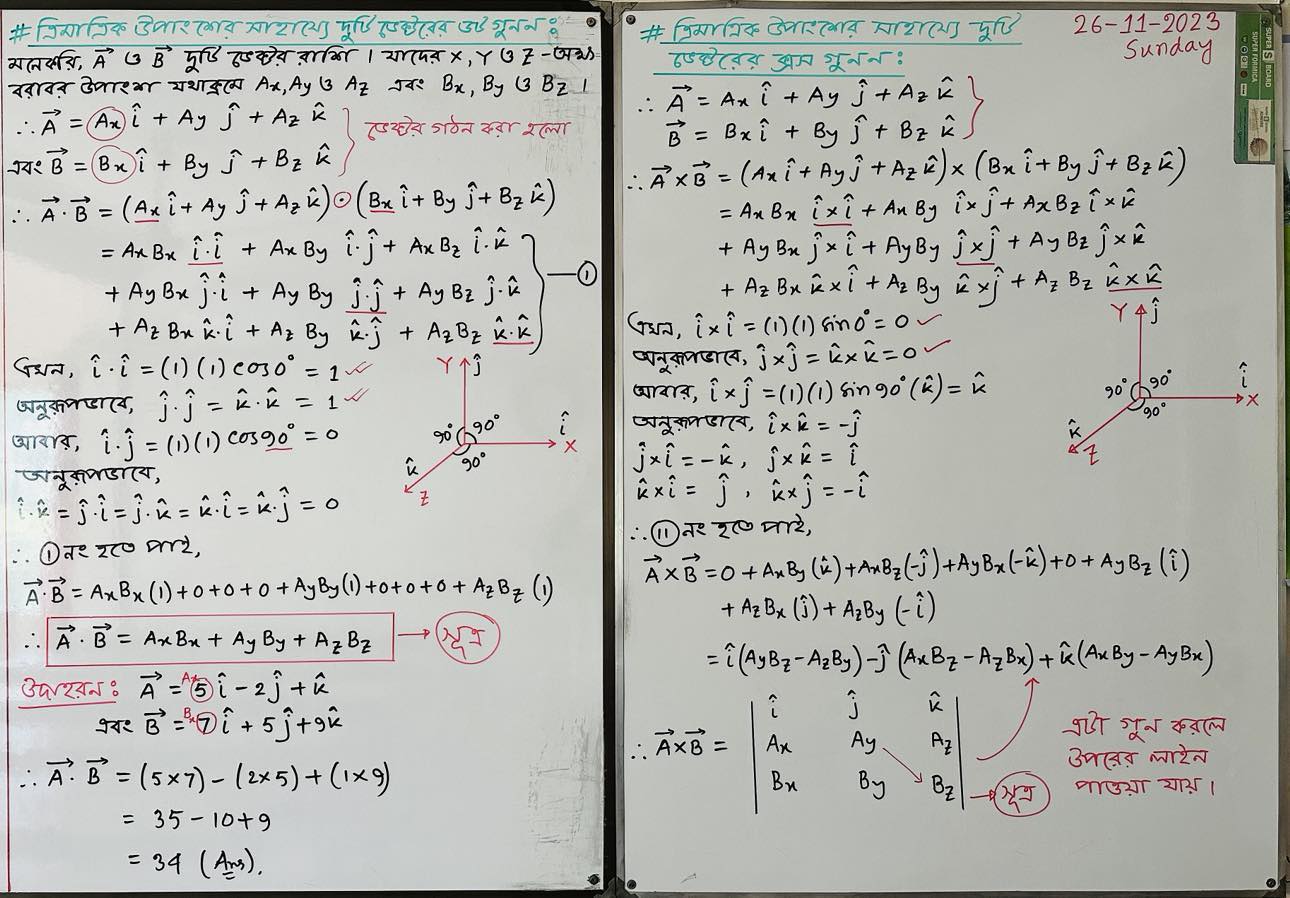 # ত্রিমাত্রিক উপাংশের সাহায্যে দুটি ভেক্টরের ডট গুনন :
মনেকরি, A⃗ ও B⃗ দুটি ভেক্টর রাশি । যাদের X, Y ও Z - অক্ষ
বরাবর উপাংশ যথাক্রমে Ax, Ay ও Az এবং Bx, By ও Bz ।
∴ A⃗ = Ax î + Ay ĵ + Az k̂
এবং B⃗ = Bx î + By ĵ + Bz k̂
ভেক্টর গঠন করা হলো
∴ A⃗ · B⃗ = (Ax î + Ay ĵ + Az k̂) · (Bx î + By ĵ + Bz k̂)
= Ax Bx î · î + Ax By î · ĵ + Ax Bz î · k̂
+ Ay Bx ĵ · î + Ay By ĵ · ĵ + Ay Bz ĵ · k̂ —①
+ Az Bx k̂ · î + Az By k̂ · ĵ + Az Bz k̂ · k̂
এখন, î · î = (1) (1) cos0° = 1
অনুরূপভাবে, ĵ · ĵ = k̂ · k̂ = 1
আবার, î · ĵ = (1) (1) cos90° = 0
অনুরূপভাবে,
î · k̂ = ĵ · î = ĵ · k̂ = k̂ · î = k̂ · ĵ = 0
Y ĵ
î
90° 90°
X
90°
k̂
Z
∴ ① নং হতে পাই,
A⃗ · B⃗ = AxBx (1) + 0 + 0 + 0 + AyBy (1) + 0 + 0 + 0 + AzBz (1)
∴ A⃗ · B⃗ = AxBx + AyBy + AzBz → সূত্র
উদাহরন : A⃗ = 5 î - 2 ĵ + k̂
Ax
এবং B⃗ = 7 î + 5 ĵ + 9 k̂
Bx
∴ A⃗ · B⃗ = (5×7) - (2×5) + (1×9)
= 35 - 10 + 9
= 34 (Ans).
# ত্রিমাত্রিক উপাংশের সাহায্যে দুটি
ভেক্টরের ক্রস গুনন :
26-11-2023
Sunday
SUPER BOARD
SUPER FORMICA
∴ A⃗ = Ax î + Ay ĵ + Az k̂
B⃗ = Bx î + By ĵ + Bz k̂
∴ A⃗ × B⃗ = (Ax î + Ay ĵ + Az k̂) × (Bx î + By ĵ + Bz k̂)
= Ax Bx î × î + Ax By î × ĵ + Ax Bz î × k̂
+ Ay Bx ĵ × î + Ay By ĵ × ĵ + Ay Bz ĵ × k̂
+ Az Bx k̂ × î + Az By k̂ × ĵ + Az Bz k̂ × k̂
এখন, î × î = (1) (1) sin0° = 0
অনুরূপভাবে, ĵ × ĵ = k̂ × k̂ = 0
আবার, î × ĵ = (1) (1) sin90° (k̂) = k̂
অনুরূপভাবে, î × k̂ = -ĵ
ĵ × î = -k̂ , ĵ × k̂ = î
k̂ × î = ĵ , k̂ × ĵ = -î
Y ĵ
î
90° 90°
X
90°
k̂
Z
∴ ⑪ নং হতে পাই,
A⃗ × B⃗ = 0 + AxBy (k̂) + AxBz (-ĵ) + AyBx (-k̂) + 0 + AyBz (î)
+ AzBx (ĵ) + AzBy (-î)
= î (AyBz - AzBy) - ĵ (AxBz - AzBx) + k̂ (AxBy - AyBx)
î ĵ k̂
∴ A⃗ × B⃗ = Ax Ay Az
Bx By Bz → সূত্র
এটা গুন করলে
উপরের লাইন
পাওয়া যায় ।